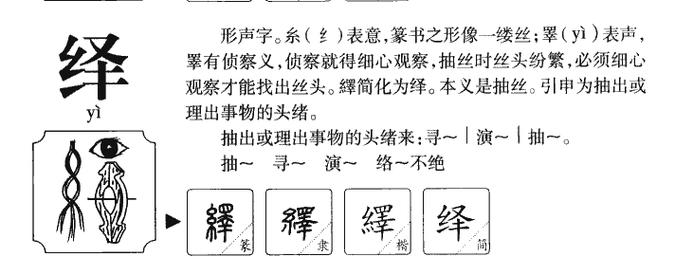 绎
yì
形声字。糸(纟)表意,篆书之形像一缕丝;睪(yì)表声,
睪有侦察义,侦察就得细心观察,抽丝时丝头纷繁,必须细心
观察才能找出丝头。繹简化为绎。本义是抽丝。引申为抽出或
理出事物的头绪。
抽出或理出事物的头绪来:寻～|演～|抽～。
抽～ 寻～ 演～ 络～不绝
繹 篆 繹 隶 繹 楷 绎 简